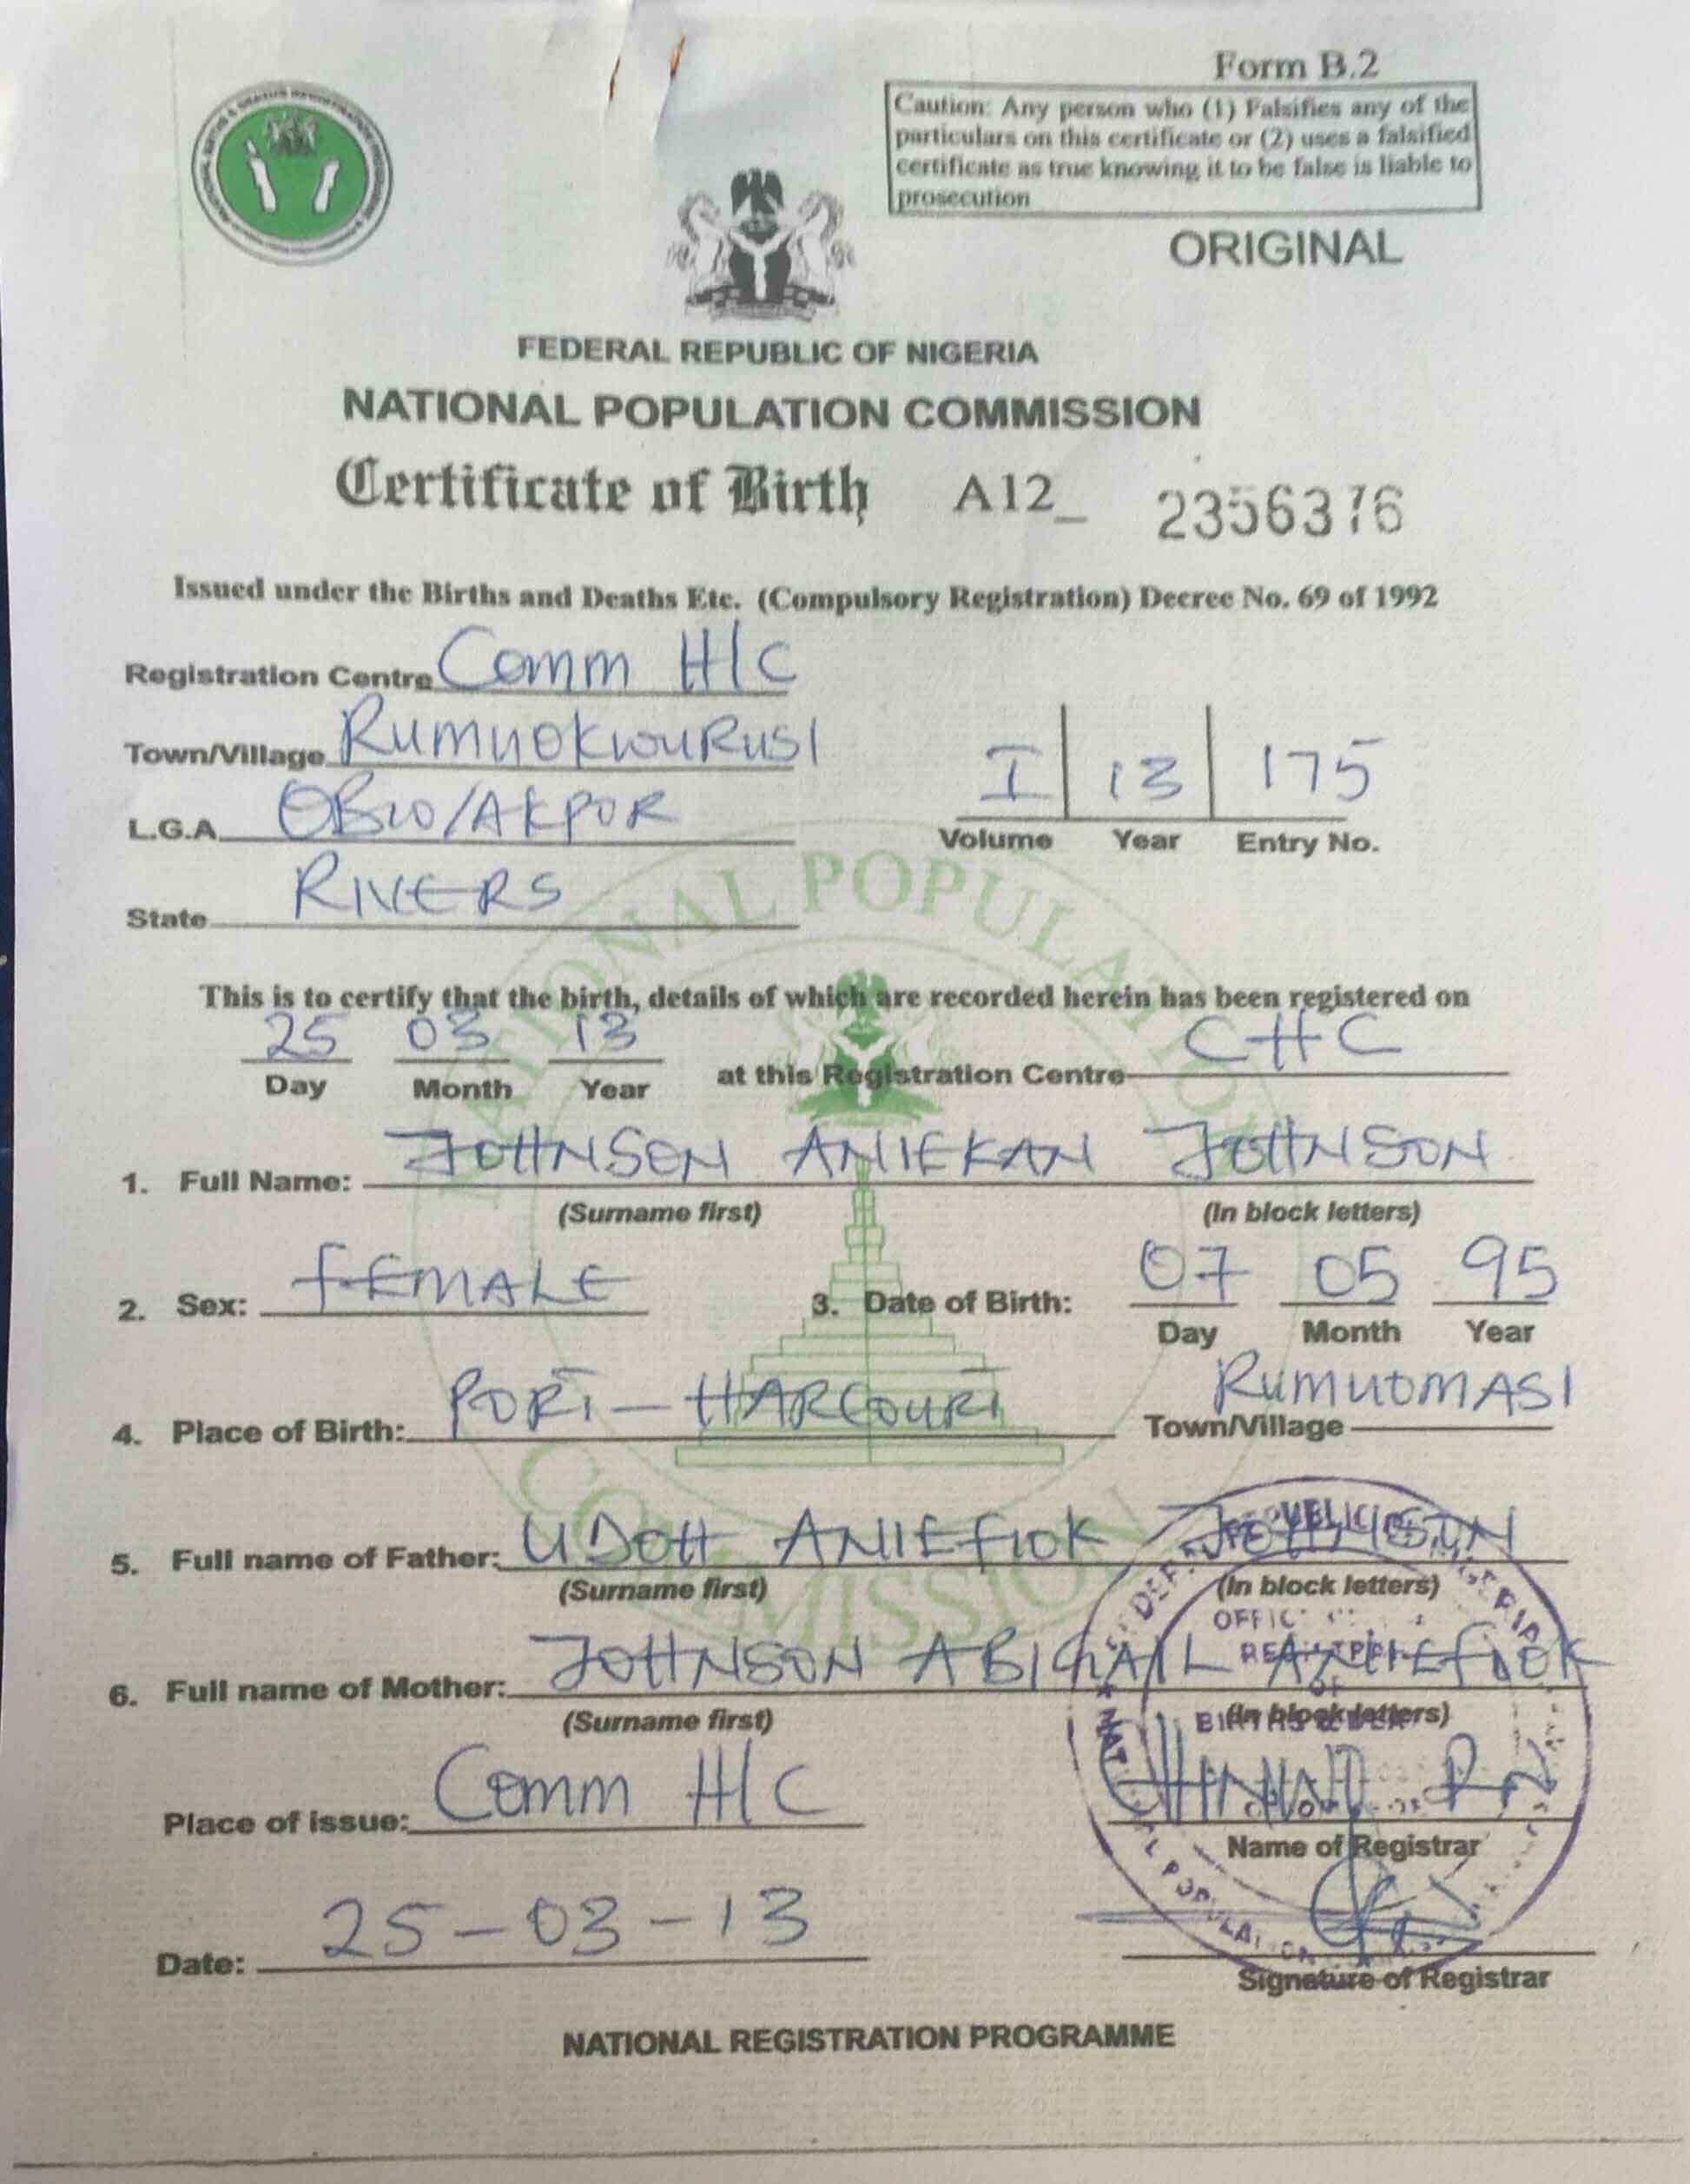 Form B.2
Caution: Any person who (1) Falsifies any of the
particulars on this certificate or (2) uses a falsified
certificate as true knowing it to be false is liable to
prosecution
ORIGINAL
FEDERAL REPUBLIC OF NIGERIA
NATIONAL POPULATION COMMISSION
Certificate of Birth A12_ 2356376
Issued under the Births and Deaths Etc. (Compulsory Registration) Decree No. 69 of 1992
Registration Centre Comm H/C
Town/Village RUMUOKWURUSI
L.G.A. OBIO/AKPOR
State RIVERS
I 13 175
Volume Year Entry No.
NATIONAL POPULATION COMMISSION
This is to certify that the birth, details of which are recorded herein has been registered on
25 03 13 at this Registration Centre CHC
Day Month Year
1. Full Name: JOHNSON ANIEKAN JOHNSON
(Surname first) (In block letters)
2. Sex: FEMALE 3. Date of Birth: 07 05 95
Day Month Year
4. Place of Birth: PORT-HARCOURT Town/Village RUMUOMASI
5. Full name of Father: UDOH ANIEFIOK JOHNSON
(Surname first) (In block letters)
6. Full name of Mother: JOHNSON ABIGAIL ANIEFIOK
(Surname first) (In block letters)
Place of issue: Comm H/C
Name of Registrar
Date: 25-03-13
Signature of Registrar
NATIONAL REGISTRATION PROGRAMME